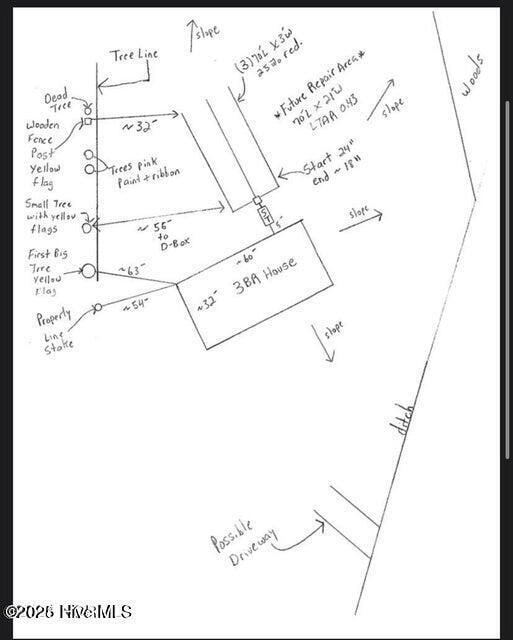 Tree Line
slope
(3) 70'L X 3'W
25% red.
Dead
Tree
~32'
*Future Repair Area*
70'L X 21'W
LTAR 0.43
slope
woods
Wooden
Fence
Post
Yellow
flag
Trees pink
Paint + ribbon
Start 24"
end ~ 18"
Small Tree
with yellow
flags
~ 56'
to
D-Box
ST
5'
slope
First Big
Tree
Yellow
Flag
~63'
~60'
3BR House
~32'
~54'
Property
Line
Stake
slope
ditch
Possible
Driveway